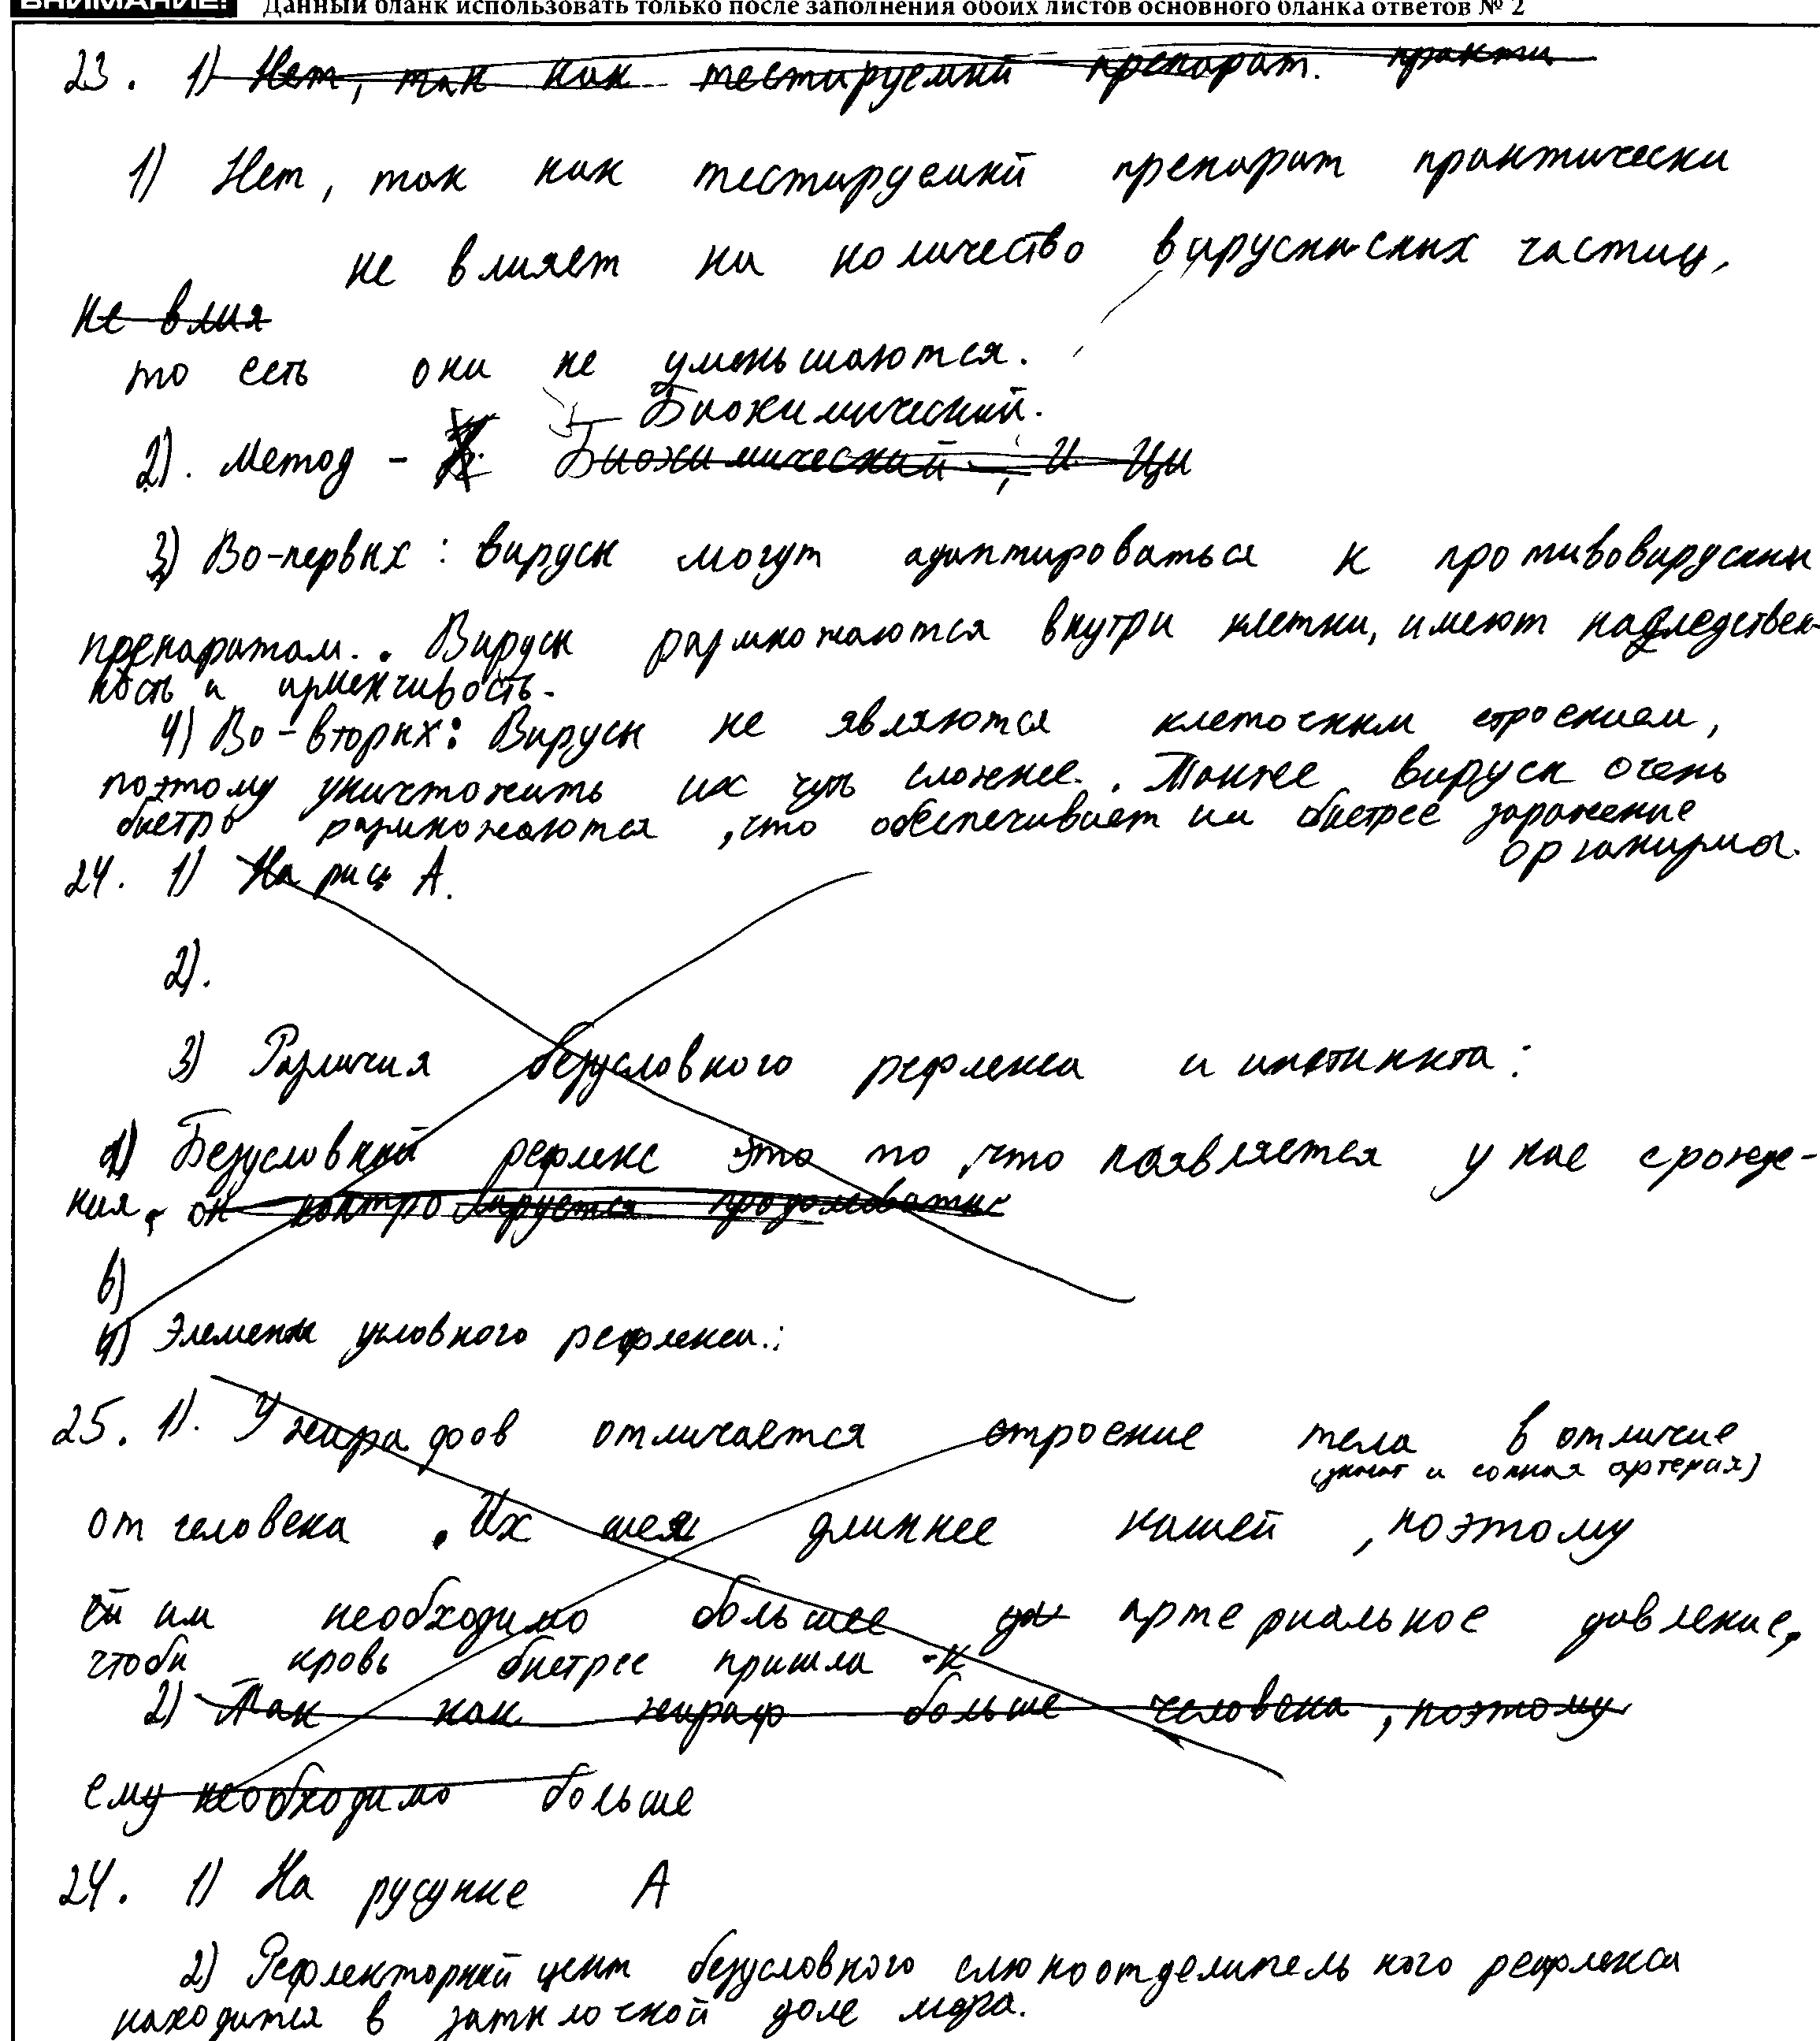 ВНИМАНИЕ! Данный бланк использовать только после заполнения обоих листов основного бланка ответов № 2
23. 1) Нет, так как тестируемый препарат. практи
1) Нет, так как тестируемый препарат практически
не влияет на количество вирусных частиц,
не влия
то есть они не уменьшаются.
Биохимический.
2). Метод - Биохимический, и Ци
3) Во-первых: вирусы могут адаптироваться к противовирусным
препаратам. Вирусы размножаются внутри клетки, имеют наследствен-
ность и изменчивость.
4) Во-вторых: Вирусы не являются клеточным строением,
поэтому уничтожить их чуть сложнее. Также вирусы очень
быстро размножаются, что обеспечивает им быстрее заражение
организма.
24. 1) На рис А.
2).
3) Различия безусловного рефлекса и инстинкта:
а) Безусловный рефлекс это то, что появляется у нас с рожде-
ния, он контролируется продолговатым
в)
4) Элементы условного рефлекса:
25. 1). У жирафов отличается строение тела в отличие
(и сонная артерия)
от человека. Их шея длиннее нашей, поэтому
ей им необходимо большее да артериальное давление,
чтобы кровь быстрее пришла к
2) Так как жираф больше человека, поэтому
ему необходимо больше
24. 1) На русунке А
2) Рефлекторный цент безусловного слюноотделительного рефлекса
находится в затылочной доле мозга.